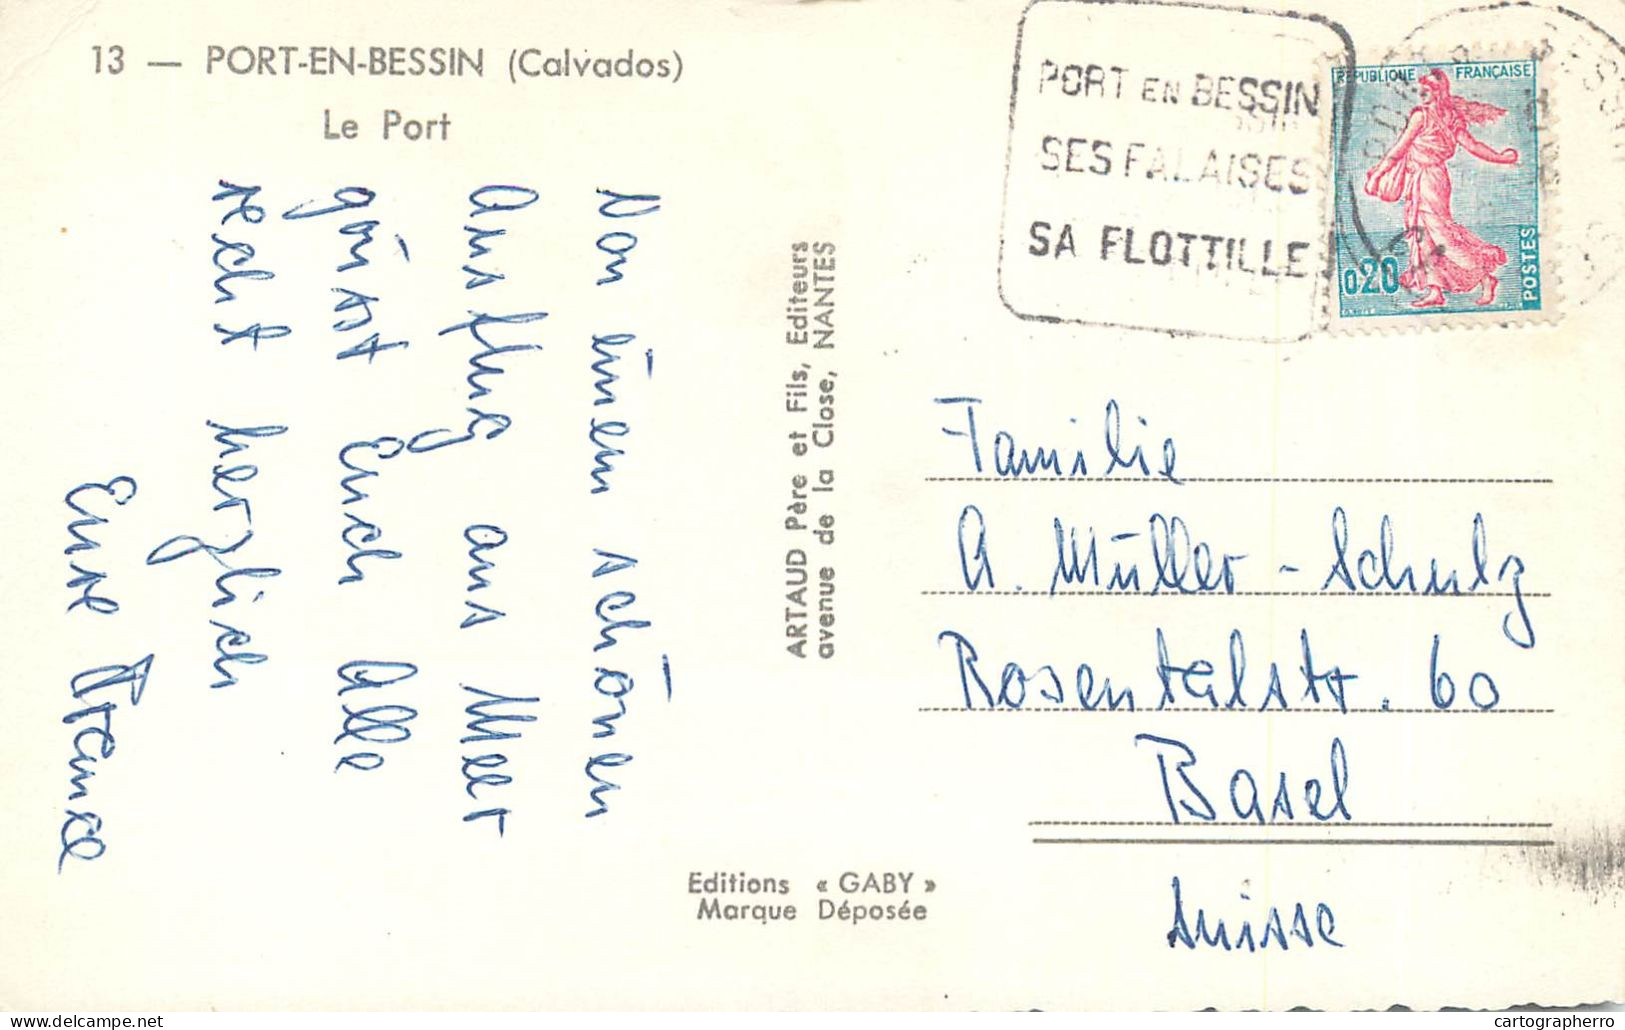 13 — PORT-EN-BESSIN (Calvados)
Le Port
Von einem schönen
Ausflug ans Meer
grüsst Euch Alle
recht herzlich
Eure
ARTAUD Père et Fils, Editeurs
avenue de la Close, NANTES
Editions « GABY »
Marque Déposée
PORT EN BESSIN
SES FALAISES
SA FLOTTILLE
REPUBLIQUE FRANÇAISE
0,20
POSTES
Familie
A. Müller-Schulz
Rosentalstr. 60
Basel
Suisse
delcampe.net
cartographerro